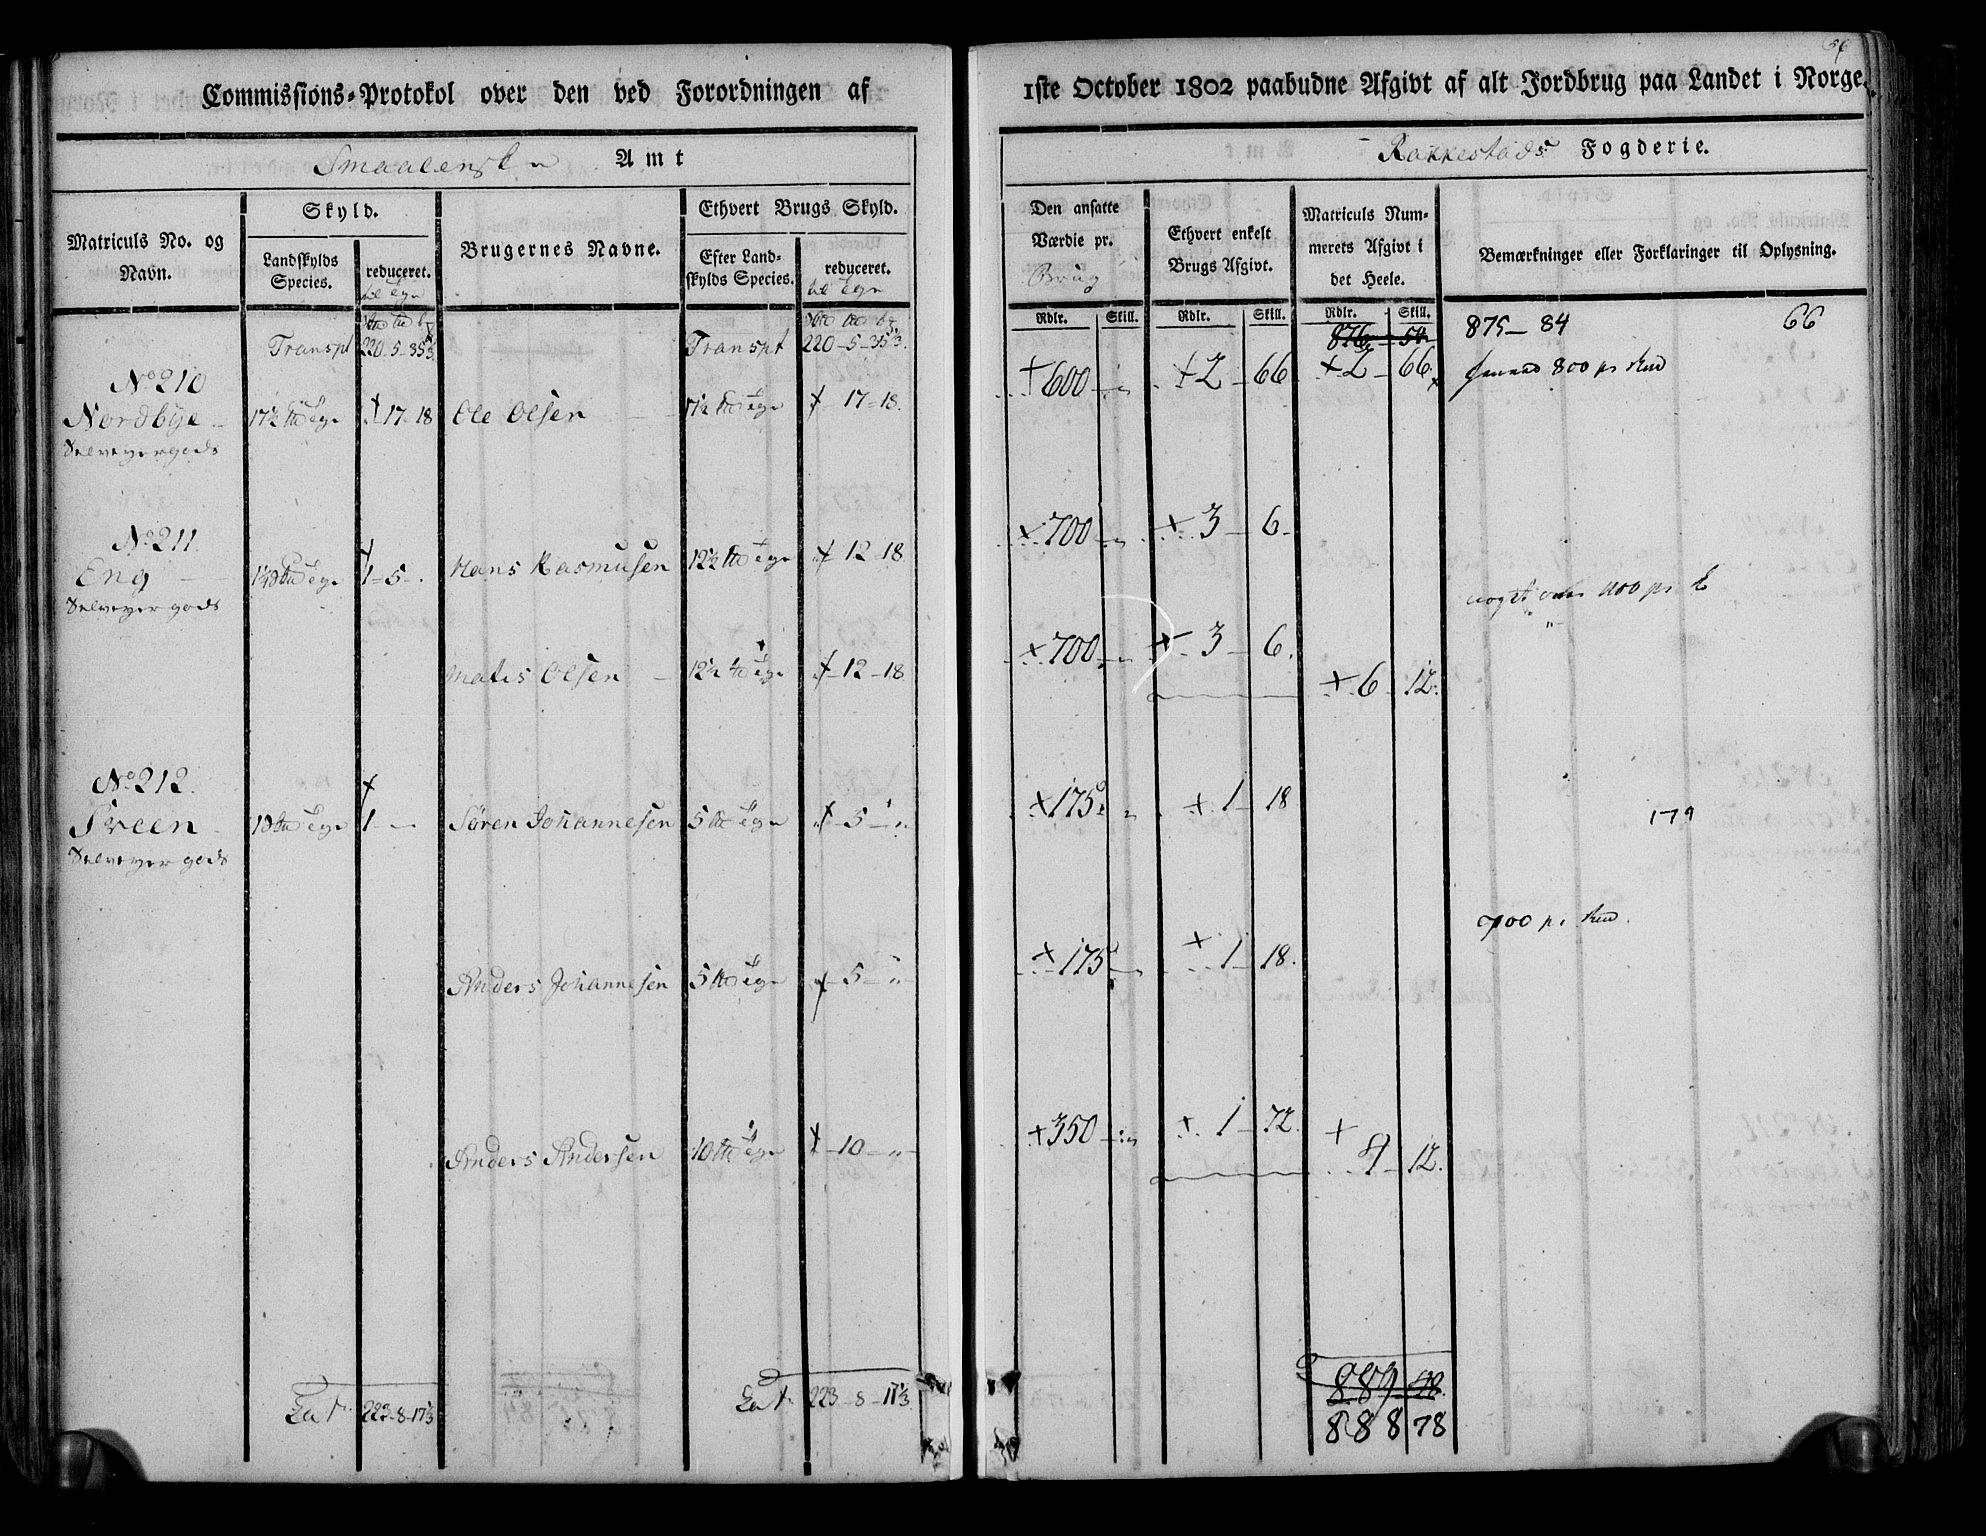 56
Commissions-Protokol over den ved Forordningen af 1ste October 1802 paabudne Afgivt af alt Jordbrug paa Landet i Norge.
Smaalenske Amt
Rakkestads Fogderie.
Matriculs No. og Navn.
Skyld.
Landskylds Species.
reduceret.
Brugernes Navne.
Ethvert Brugs Skyld.
Efter Landskylds Species.
reduceret.
Den ansatte Værdie pr. Brug
Ethvert enkelt Brugs Afgivt.
Matriculs Nummerets Afgivt i det Heele.
Bemærkninger eller Forklaringer til Oplysning.
Rdlr. Skill. Rdlr. Skill. Rdlr. Skill.
Transpt 220-5-35 1/3 Transpt 220-5-35 1/3 875-84 66
No 210
Nordbye 17½ 17-18 Ole Olsen 17½ 17-18. 600 2-66 2-66
Selveyergods
No 211.
Eng 1-5 Hans Rasmusen 12½ 12-18 700 3-6
Selveyergods
Mates Olsen 12½ 12-18 700 3-6. 6-12.
No 212.
Treen 1 Søren Johannesen 5 5 175 1-18 179
Selveyergods
Anders Johannesen 5 5 175 1-18.
Anders Andersen 10 10 350 1-72. 4-12.
Lat. 223-8-17 1/3 Lat. 223-8-17 1/3 889-48.
888 78